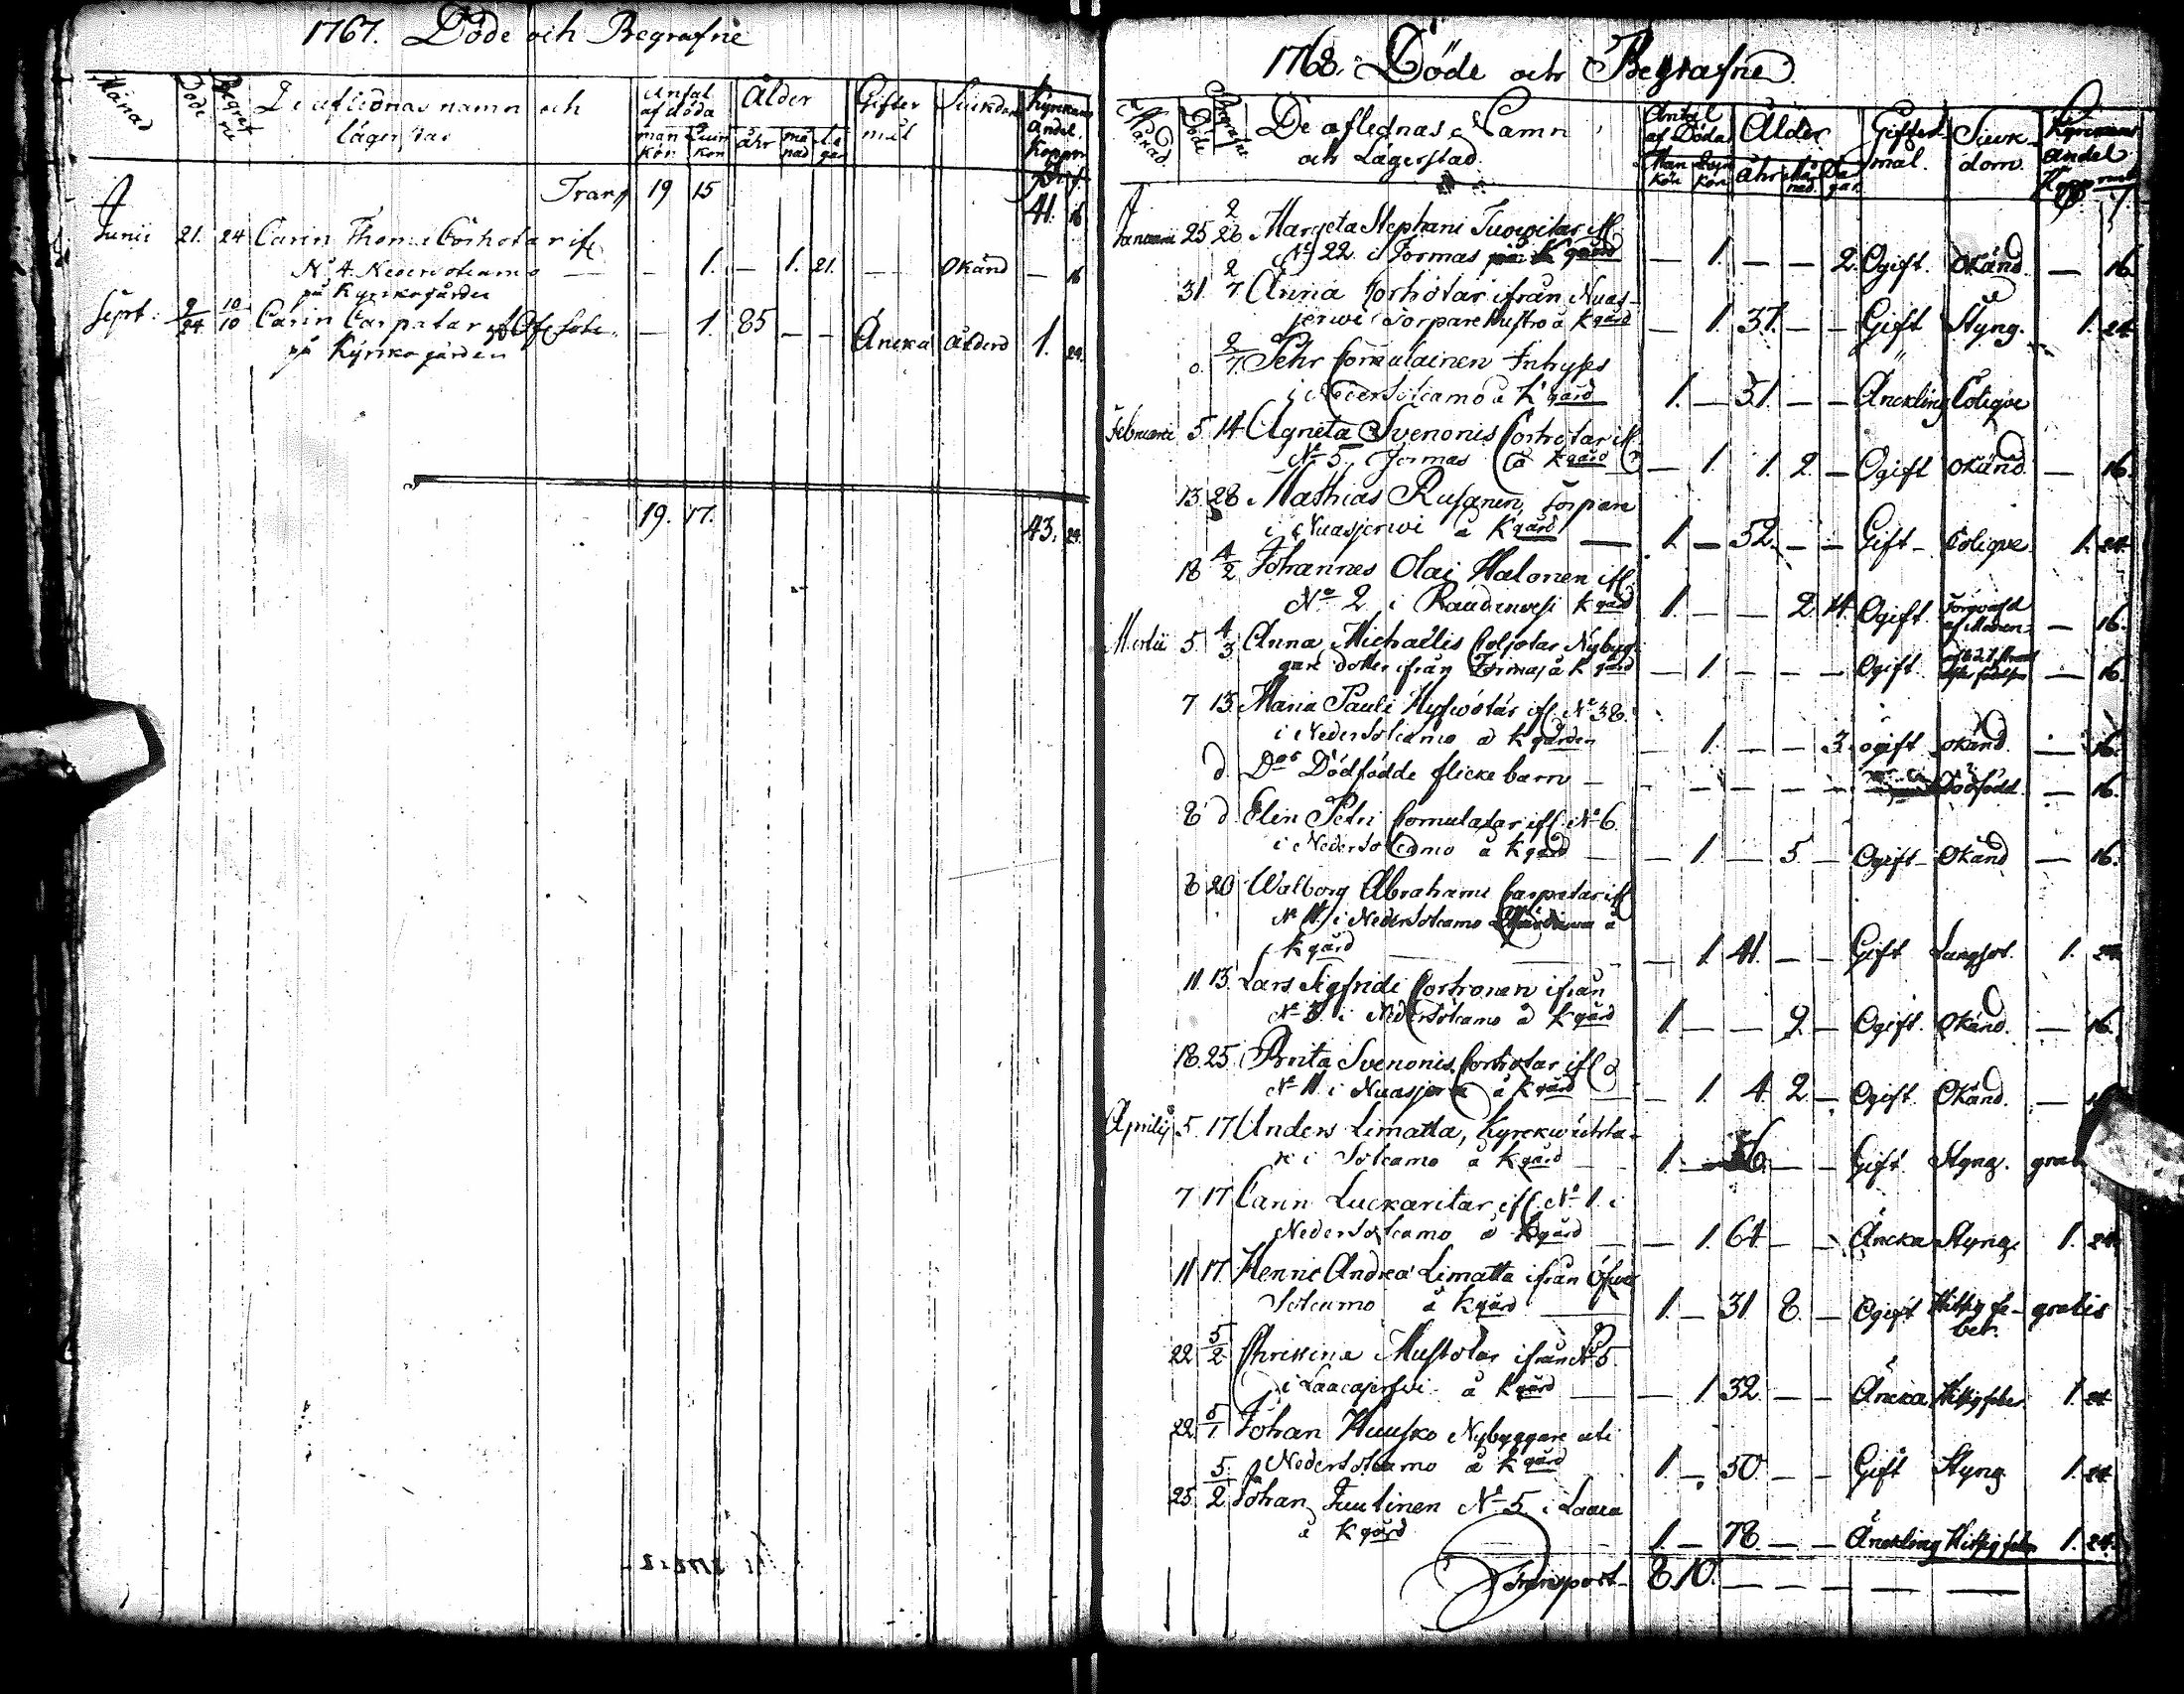 1767. Döde och Begrafne
Månad Döde Begrafne De aflednas namn och lägerstad Antal af döda mankön Quinkön Ålder åhr månad dagar Giftermål Siukdom Kyrkans andel. Koppor
Transp 19 15 41. 16
Junii 21. 24 Carin Thomæ Corhotar ifr
No 4 Nedersotkamo — — 1. — 1. 21. — Okänd — 16
på Kyrkogården
Sept: 9/24 10/10 Carin Carpatar af Öfsotk: — 1. 85 — — Äncka Ålderd 1. 24.
på Kyrkogården
19. 17. 43. 24.
1768. Döde och Begrafne
Månad Döde Begrafne De aflednas Namn och Lägerstad. Antal af Döda Mankön Quinkön Ålder Åhr Månad. Dagar. Giftermål. Siuckdom. Kyrckans andel Kopparmt
Januarii 25 2/26 Margeta Stephani
No 22 i Jormas k gård — 1. — — 2. Ogift. Okänd. — 16.
31. 2/7 Anna Corhotar ifrån Nuas-
jerwi Torpare Hustro å k gård — 1. 37. — — Gift Styng. 1. 24.
2/7. Pehr Comulainen Inhyses
i Nedersotcamo å k gård 1. — 51. — — Änckling Colique
Februarii 5. 14. Agneta Svenonis Corhotar ifr.
No 5. i Jormas å k gård — 1. 1. 2. — Ogift Okänd. — 16.
13. 28 Mathias Rusanen, Torpare
i Nuasjerwi å k gård 1. — 52. — — Gift — Colique. 1. 24.
18 4/2 Johannes Olai Halonen ifr.
No 2 i Raudanwesi k gård 1. — — 2. 14. Ogift. — 16.
Martii 5. 4/3 Anna Michaëlis Coljotar Nybyg-
gare dotter ifrån Jormas å k gård — 1. — — — Ogift. — 16.
7 13. Maria Pauli ifr. No 38.
i Nedersotcamo å k gården — 1. — — 3. ogift okänd. — 16.
d. Dos Dödfödde flicke barn — — — — — — Dödfödd. — 16.
8 d. Elin Petri Comulatar ifr. No 6.
i Nedersotcamo å k gård — — 1. — 5. — Ogift — Okänd — 16.
8 20 Walborg Abrahami Carpatar ifr
No 11. i Nedersotcamo å
k gård — 1. 41. — — Gift Lungsot. 1. 24.
11. 13. Lars Sigfridi Corhonen ifrån
No 3. i Nedersotcamo å k gård 1. — — 9. — Ogift. Okänd. — 16.
18. 25. Brita Svenonis Corhotar ifr
No 11. i Nuasjerwi å k gård — 1. 4. 2. — Ogift. Okänd. —
Aprilis 5. 17. Anders Limatta, Kyrckwächta-
re i Sotcamo å k gård 1. — 56. — — Gift. Styng.
7 17 Carin Luckaritar ifr. No 1. i
Nedersotcamo å k gård — 1. 64 — — Äncka Styng. 1. 24.
11 17. Henric Andreæ Limatta ifrån Öfwer
Sotcamo å k gård — 1. — 31 8. — Ogift Hitsig fe-
ber. gratis
22 5/2 Christina Mustotar ifrån No 5.
i Laacajerfwi å k gård — 1. 32. — — Äncka Hitsig feber 1. 24.
22. 5/1. Johan Huusko Nybyggare uti
Nedersotcamo å k gård 1. — 50. — — Gift Styng. 1. 24.
25. 5/2 Johan Juutinen No 5. i Laaca
å k gård 1. — 78. — — Änckling Hitsig feber 1. 24.
Transport — 8. 10. — — — — —